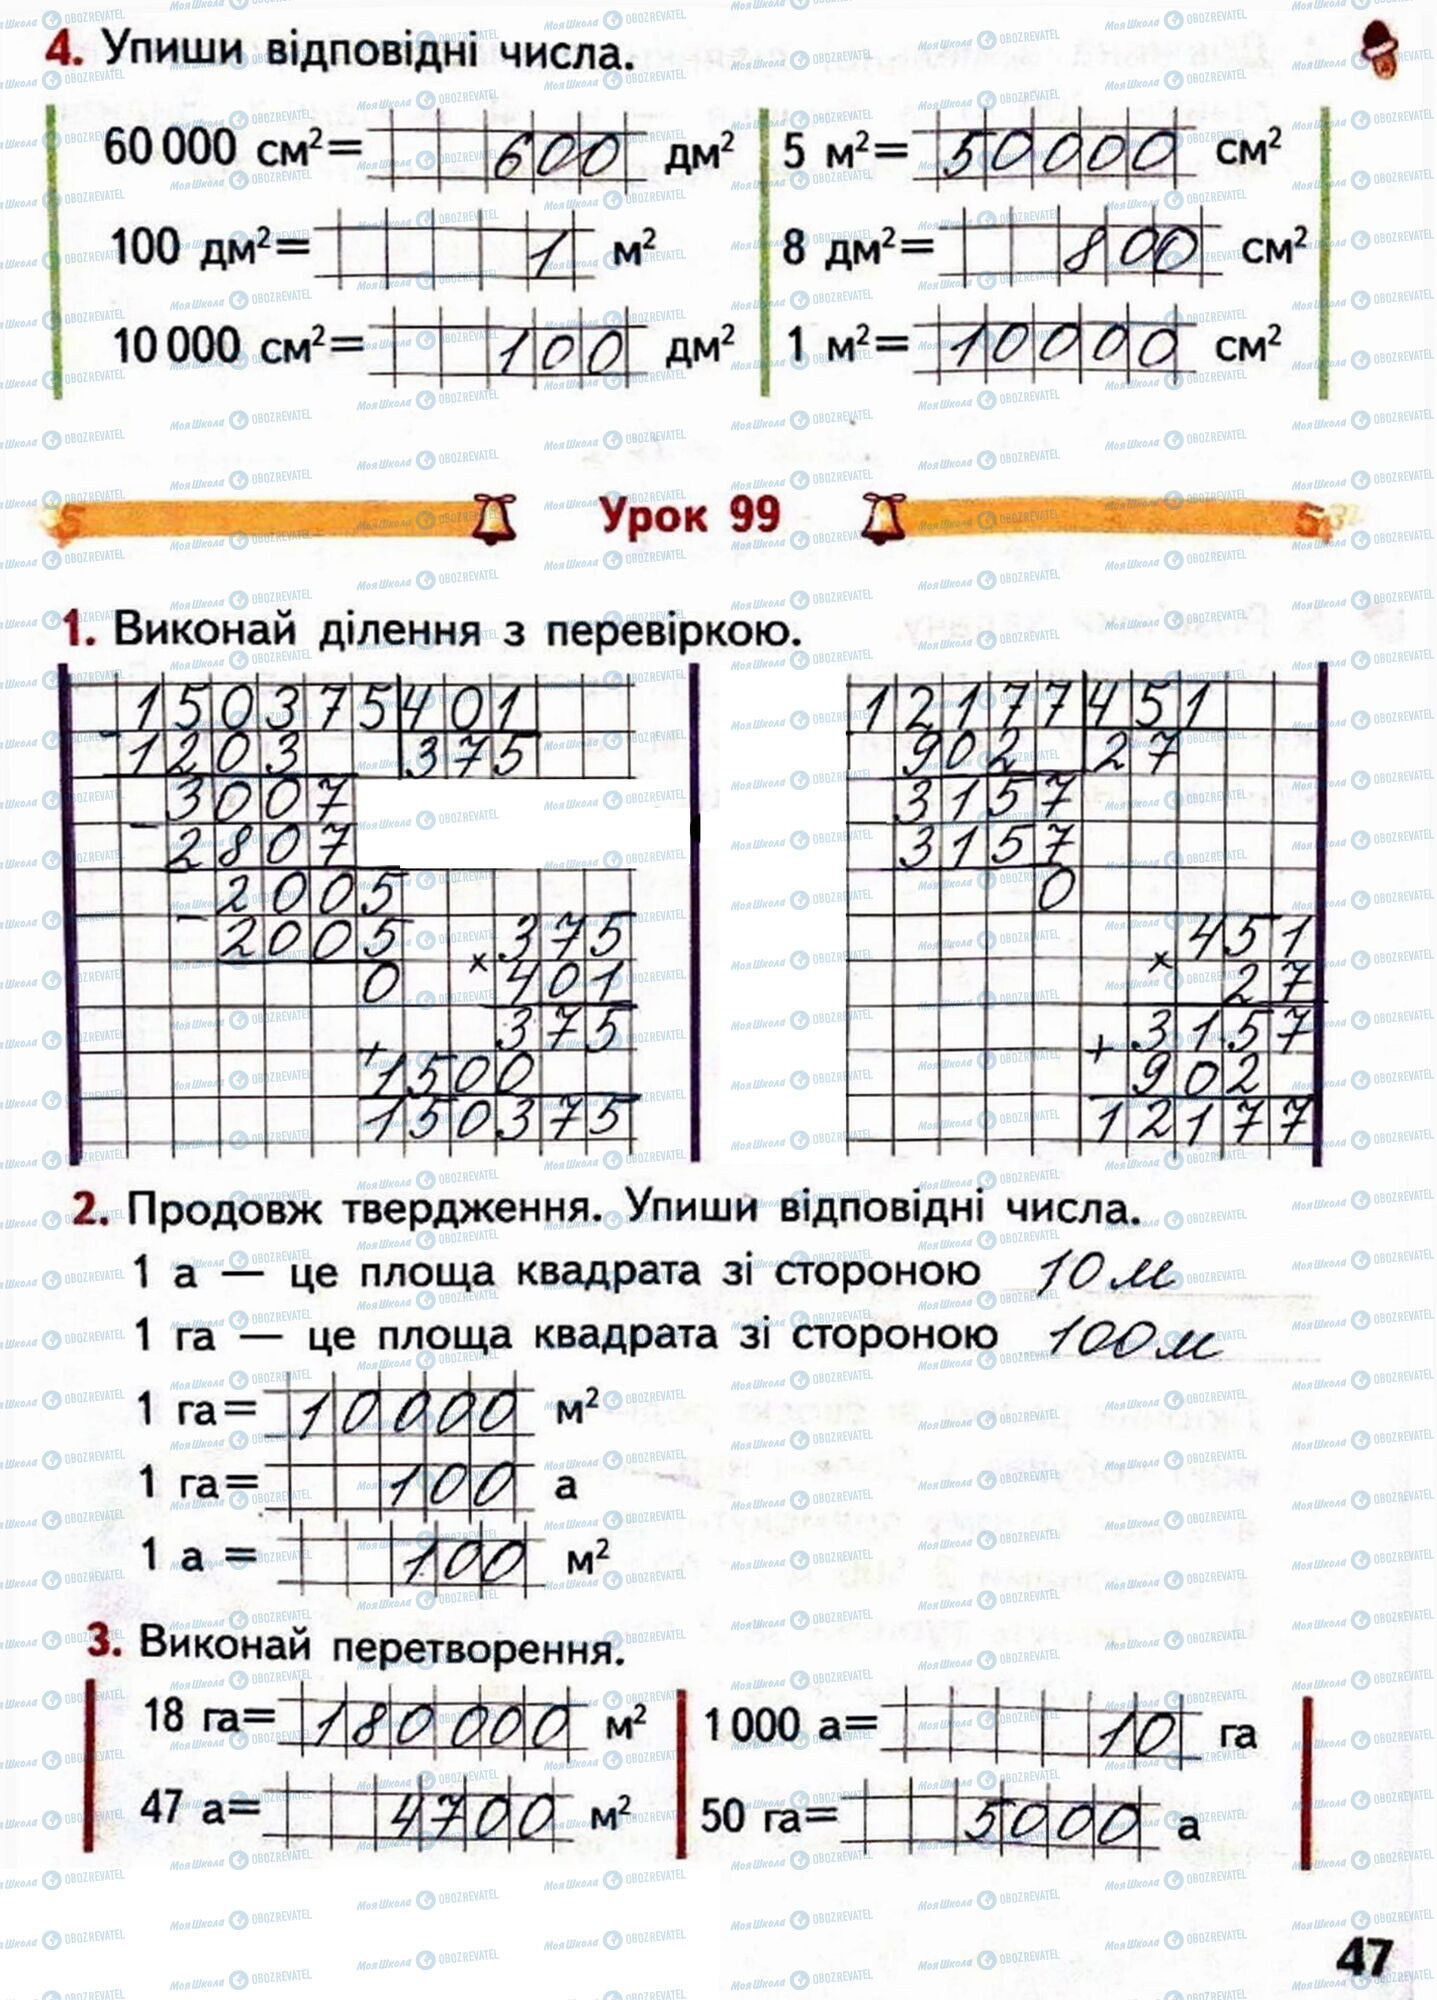 4. Упиши відповідні числа.
60 000 см²= 600 дм²
5 м²= 50000 см²
100 дм²= 1 м²
8 дм²= 800 см²
10 000 см²= 100 дм²
1 м²= 10000 см²
Урок 99
1. Виконай ділення з перевіркою.
150375 401
- 1203 375
3007
- 2807
2005
- 2005
0
375
× 401
375
+ 1500
150375
12177 451
902 27
3157
3157
0
451
× 27
3157
+ 902
12177
2. Продовж твердження. Упиши відповідні числа.
1 а — це площа квадрата зі стороною 10 м
1 га — це площа квадрата зі стороною 100 м
1 га= 10000 м²
1 га= 100 а
1 а = 100 м²
3. Виконай перетворення.
18 га= 180000 м²
1 000 а= 10 га
47 а= 4700 м²
50 га= 5000 а
47
МояШкола OBOZREVATEL